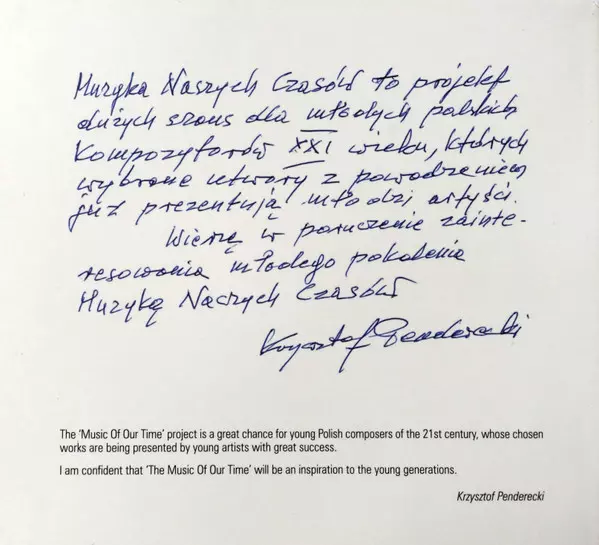 Muzyka Naszych Czasów to projekt
dużych szans dla młodych polskich
Kompozytorów XXI wieku, których
wybrane utwory z powodzeniem
już prezentują młodzi artyści.
Wierzę w poruszenie zainte-
resowania młodego pokolenia
Muzyką Naszych Czasów
Krzysztof Penderecki
The 'Music Of Our Time' project is a great chance for young Polish composers of the 21st century, whose chosen
works are being presented by young artists with great success.
I am confident that 'The Music Of Our Time' will be an inspiration to the young generations.
Krzysztof Penderecki